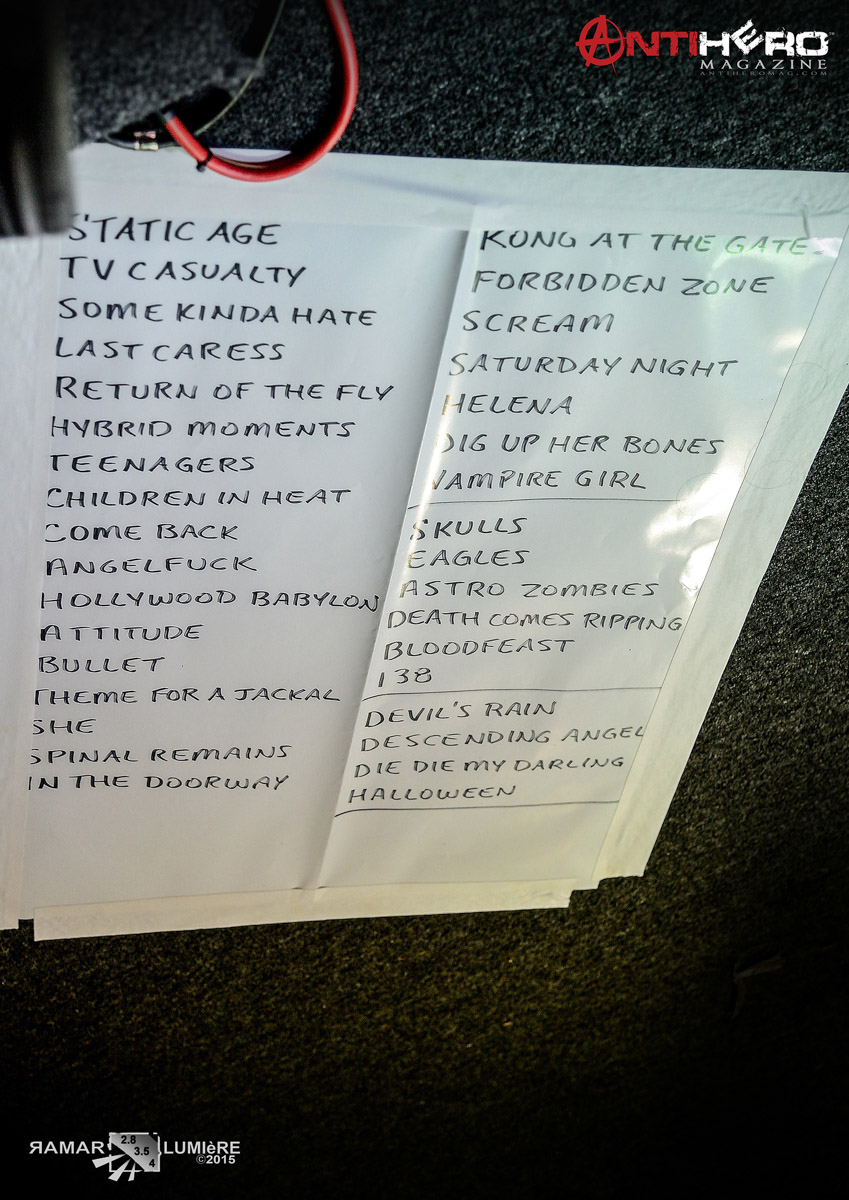 ANTIHERO
MAGAZINE
ANTIHEROMAG.COM
STATIC AGE
TV CASUALTY
SOME KINDA HATE
LAST CARESS
RETURN OF THE FLY
HYBRID MOMENTS
TEENAGERS
CHILDREN IN HEAT
COME BACK
ANGELFUCK
HOLLYWOOD BABYLON
ATTITUDE
BULLET
THEME FOR A JACKAL
SHE
SPINAL REMAINS
IN THE DOORWAY
KONG AT THE GATE
FORBIDDEN ZONE
SCREAM
SATURDAY NIGHT
HELENA
DIG UP HER BONES
VAMPIRE GIRL
SKULLS
EAGLES
ASTRO ZOMBIES
DEATH COMES RIPPING
BLOODFEAST
138
DEVIL'S RAIN
DESCENDING ANGEL
DIE DIE MY DARLING
HALLOWEEN
ЯAMAR LUMIèRE
2.8
3.5
4
©2015